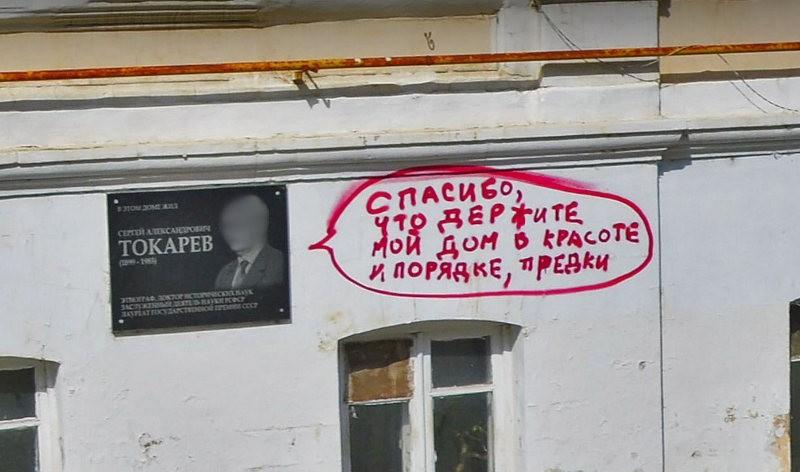 В ЭТОМ ДОМЕ ЖИЛ
СЕРГЕЙ АЛЕКСАНДРОВИЧ
ТОКАРЕВ
(1899 - 1985)
ЭТНОГРАФ, ДОКТОР ИСТОРИЧЕСКИХ НАУК
ЗАСЛУЖЕННЫЙ ДЕЯТЕЛЬ НАУКИ РСФСР
ЛАУРЕАТ ГОСУДАРСТВЕННОЙ ПРЕМИИ СССР
СПАСИБО,
ЧТО ДЕРЖИТЕ
МОЙ ДОМ В КРАСОТЕ
И ПОРЯДКЕ, ПРЕДКИ